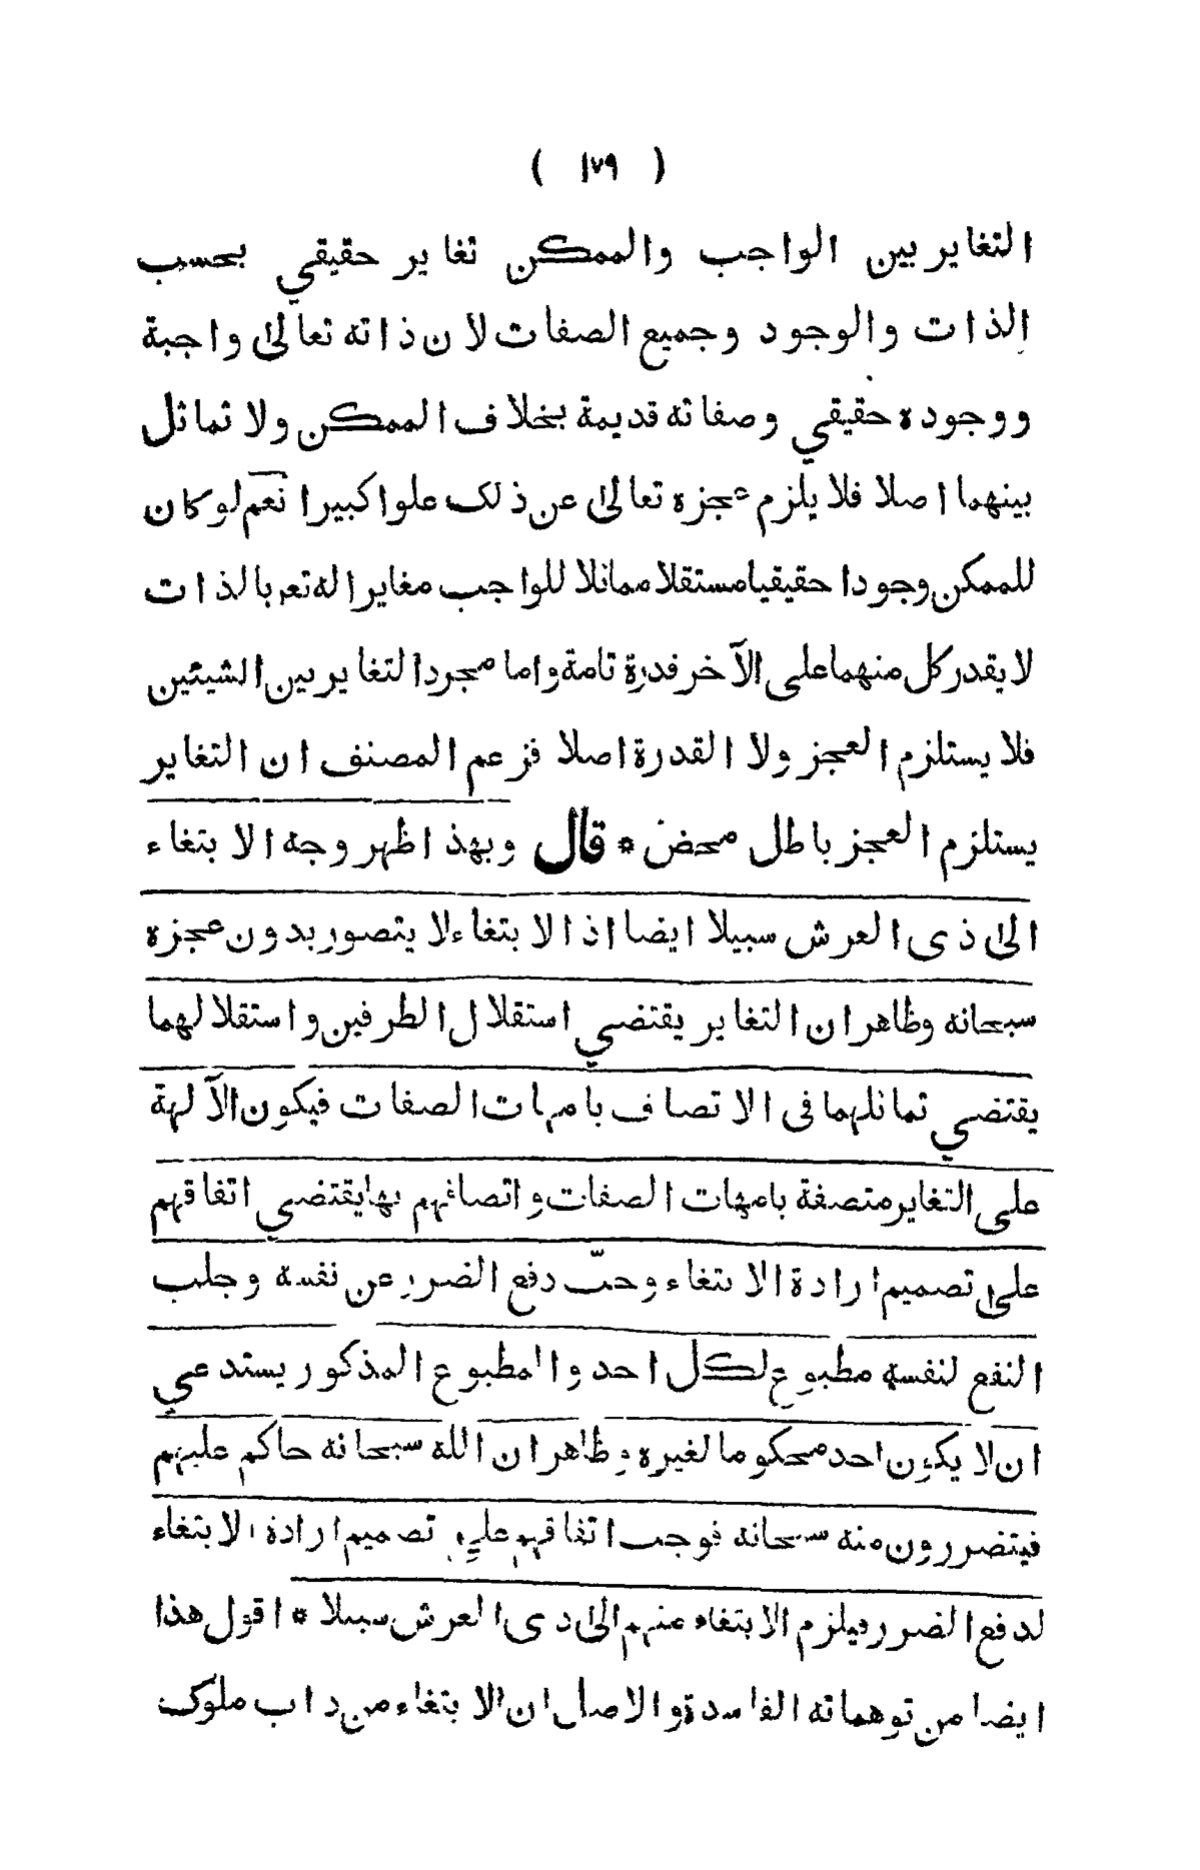 ( ١٧٩ )
التغاير بين الواجب والممكن تغاير حقيقي بحسب
الذات والوجود وجميع الصفات لان ذاته تعالىٰ واجبة
ووجوده حقيقي وصفاته قديمة بخلاف الممكن ولا تماثل
بينهما اصلا فلا يلزم عجزه تعالىٰ عن ذلك علوا كبيرا نعم لو كان
للممكن وجودا حقيقيا مستقلا مماثلا للواجب مغايرا له تعم بالذات
لا يقدر كل منهما على الآخر قدرة تامة واما مجرد التغاير بين الشيئين
فلا يستلزم العجز ولا القدرة اصلا فزعم المصنف ان التغاير
يستلزم العجز باطل محض * قال وبهذا ظهر وجه الابتغاء
الىٰ ذى العرش سبيلا ايضا اذ الابتغاء لا يتصور بدون عجزه
سبحانه وظاهر ان التغاير يقتضي استقلال الطرفين واستقلالهما
يقتضي تماثلهما فى الاتصاف بامهات الصفات فيكون الآلهة
على التغاير متصفة بامهات الصفات واتصافهم بها يقتضي اتفاقهم
علىٰ تصميم ارادة الابتغاء وحبّ دفع الضرر عن نفسه وجلب
النفع لنفسه مطبوع لكل احد والمطبوع المذكور يستدعي
ان لا يكون احد محكوما لغيره وظاهر ان الله سبحانه حاكم عليهم
فيتضررون منه سبحانه فوجب اتفاقهم علىٰ تصميم ارادة الابتغاء
لدفع الضرر فيلزم الابتغاء منهم الىٰ ذى العرش سبيلا * اقول هذا
ايضا من توهماته الفاسدة والاصل ان الابتغاء من داب ملوك